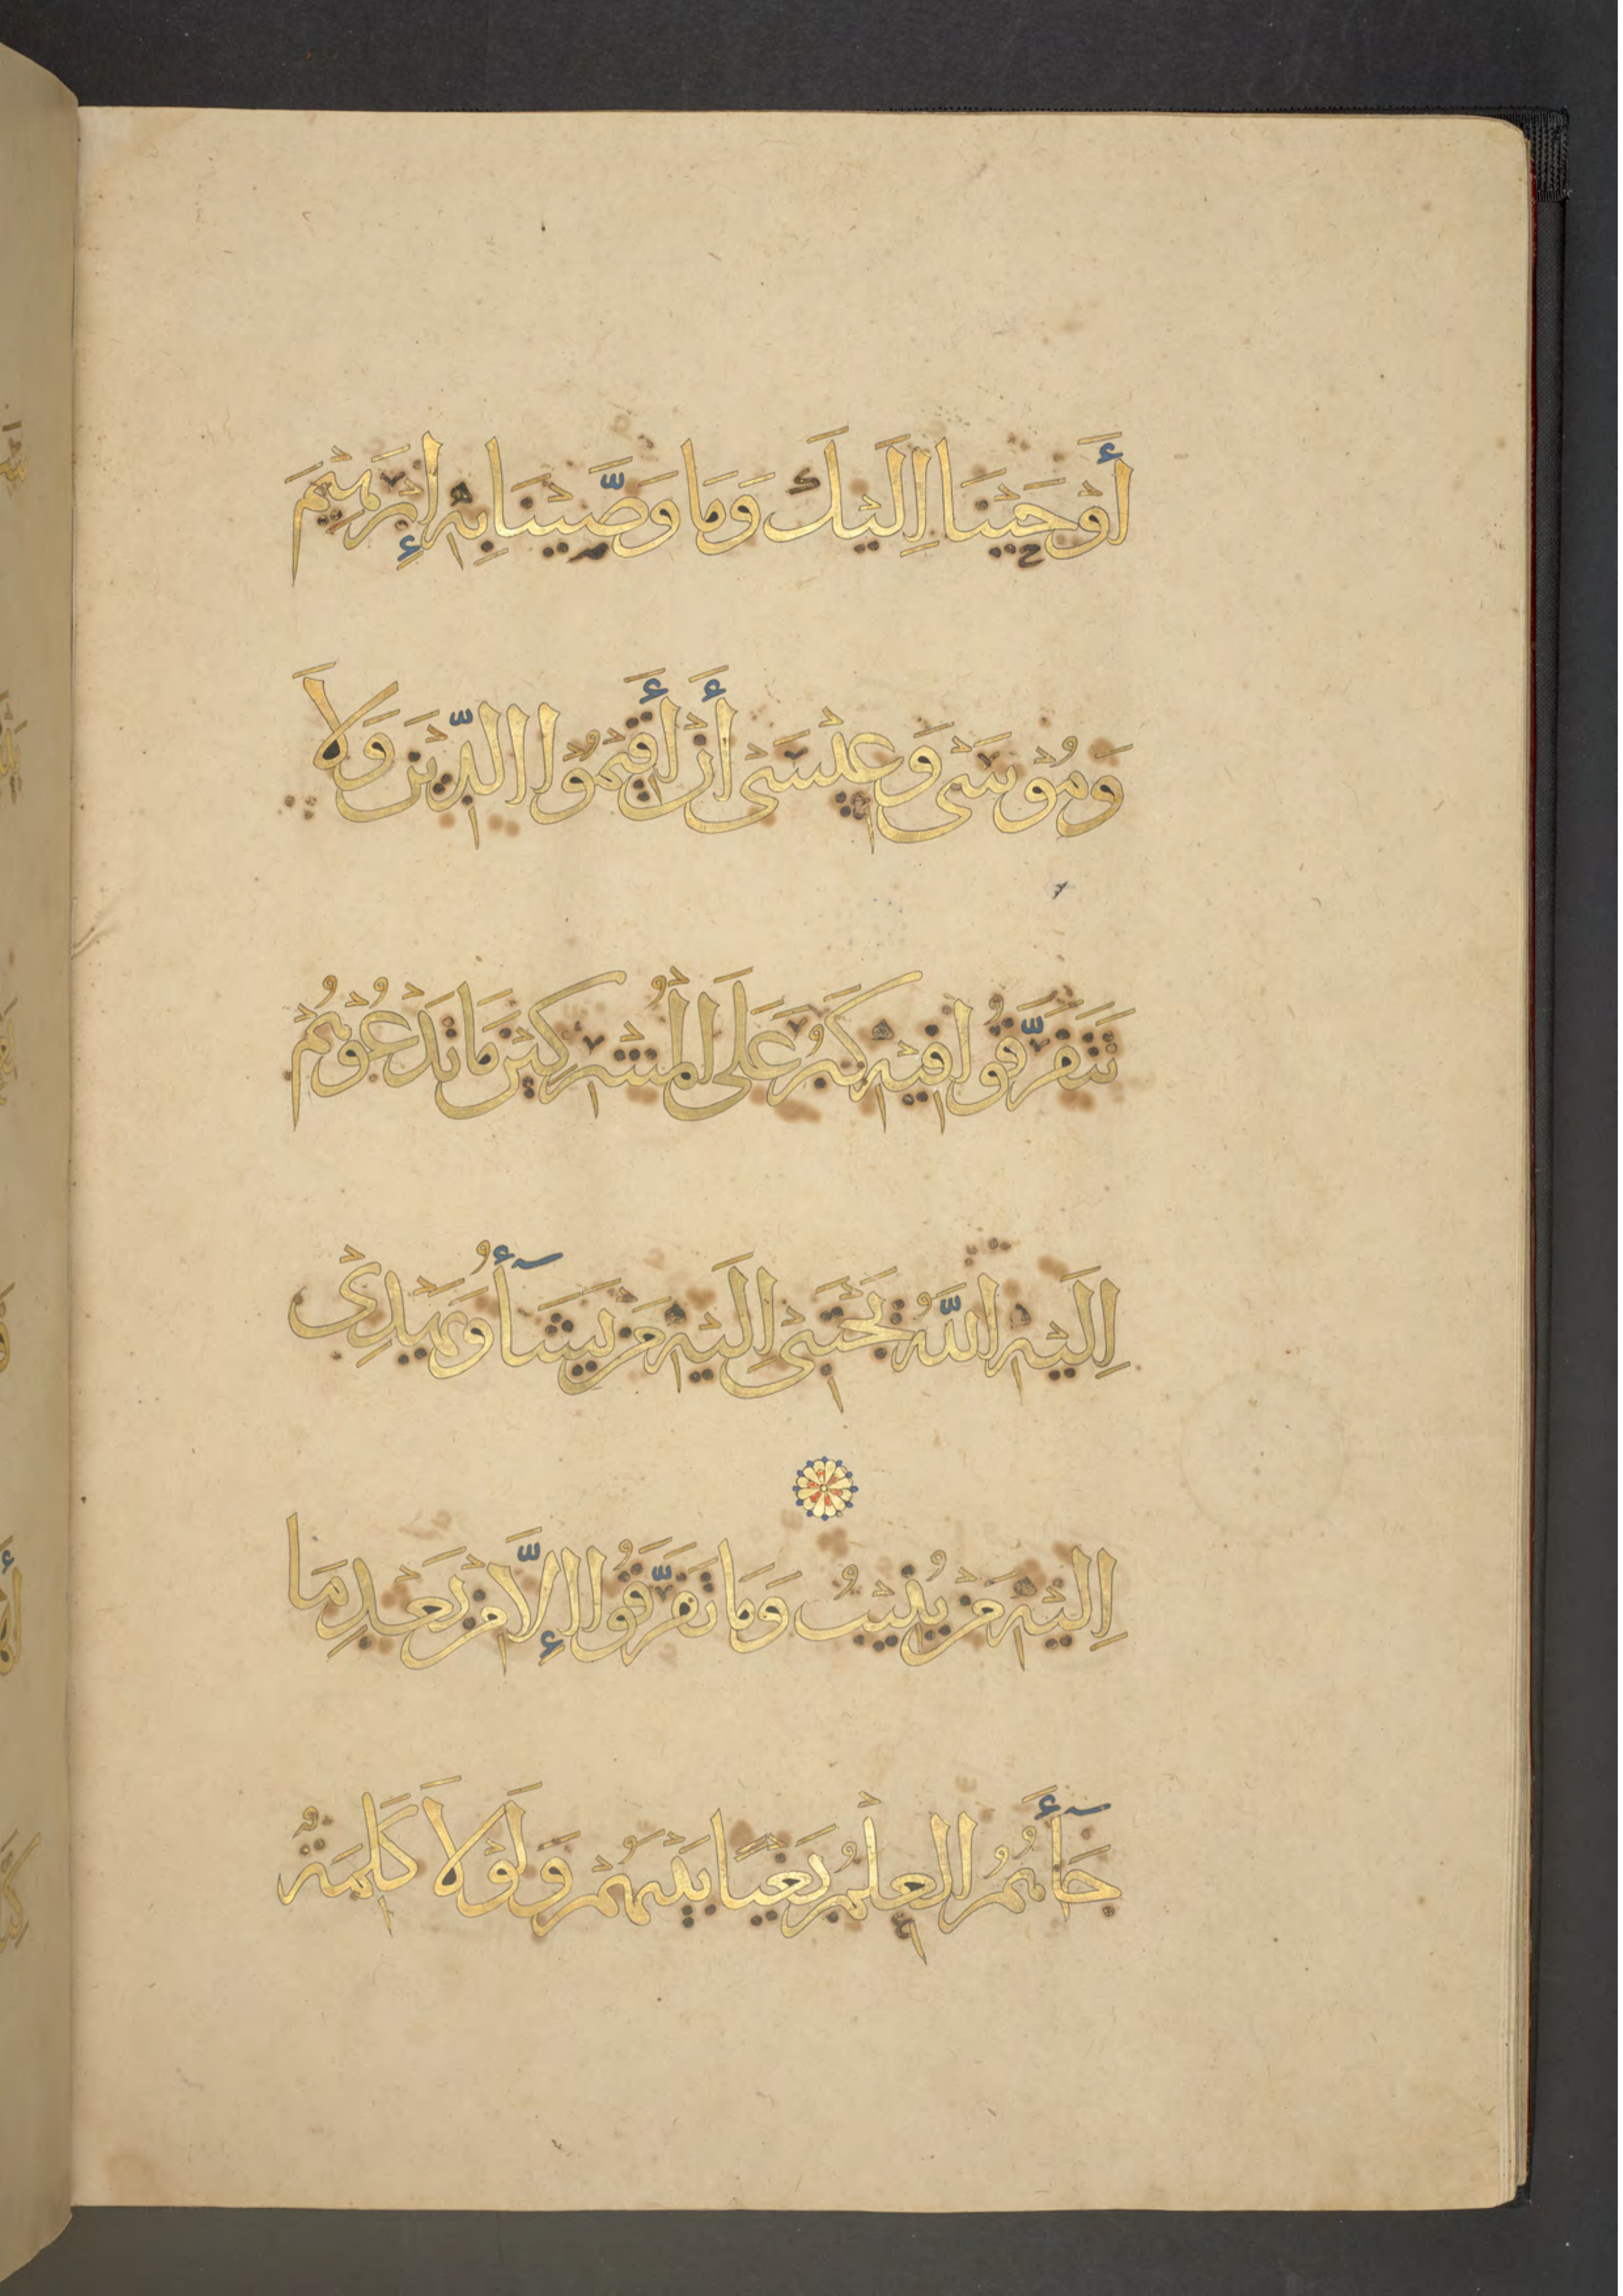 أَوْحَيْنَا اِلَيْكَ وَمَا وَصَّيْنَا بِهِ إِبْرَهِيْمَ
وَمُوْسَىْ وَعِيْسَىْ أَنْ أَقِيْمُوْا الدِّيْنَ وَلَا
تَتَفَرَّقُوا فِيْهِ كَبُرَ عَلَى الْمُشْرِكِيْنَ مَا تَدْعُوْهُمْ
اِلَيْهِ اللَّهُ يَجْتَبِىْ اِلَيْهِ مَنْ يَشَآأُ وَيَهْدِىْ
اِلَيْهِ مَنْ يُنِيْبُ وَمَا تَفَرَّقُوا اإِلَّا مِنْ بَعْدِ مَا
جَآأَهُمُ الْعِلْمُ بَغْيًا بَيْنَهُمْ وَلَوْلَا كَلِمَةٌ